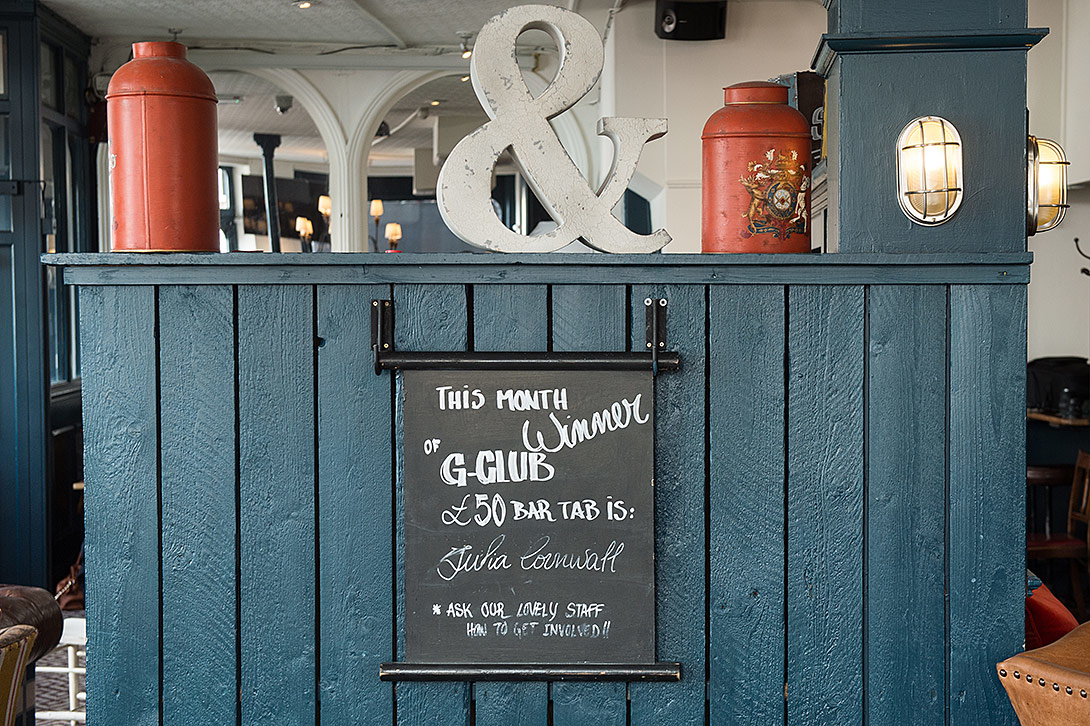 &
THIS MONTH
Winner
OF
G-CLUB
£50 BAR TAB IS:
Julia Cornwall
* ASK OUR LOVELY STAFF
HOW TO GET INVOLVED!!